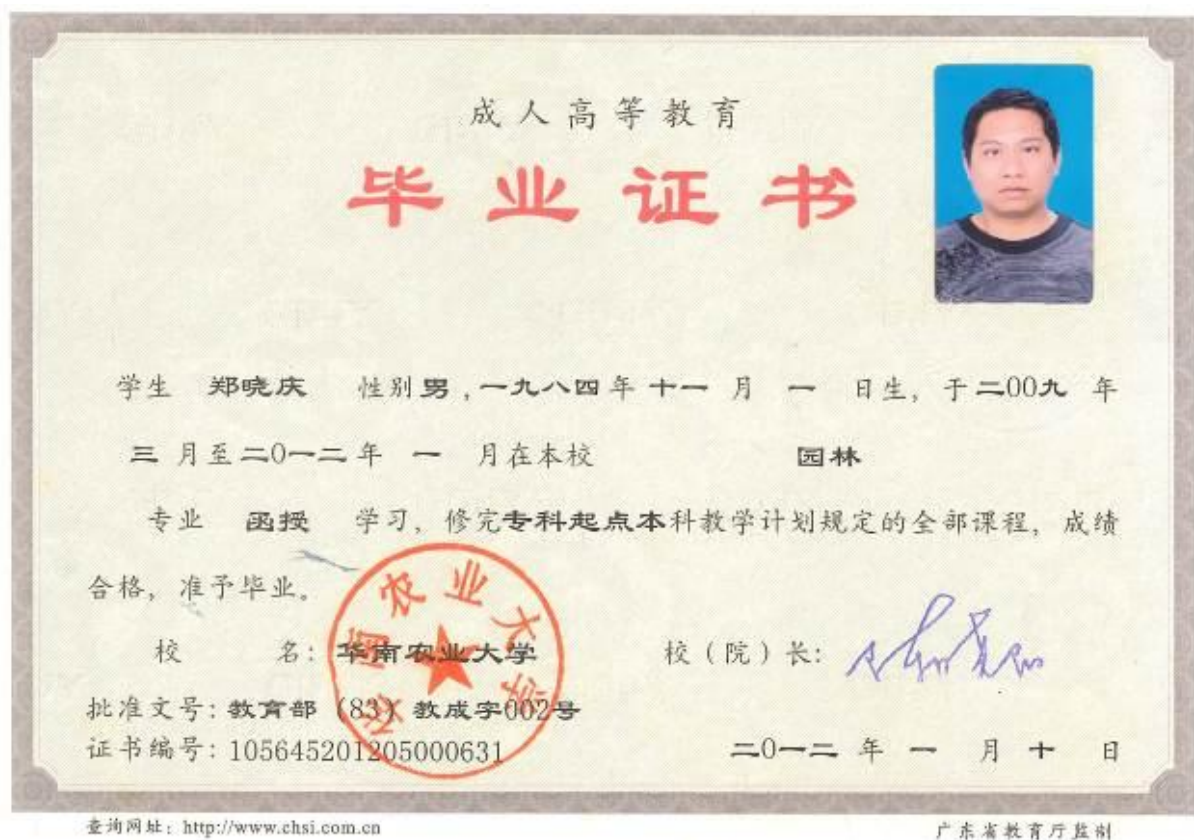 成人高等教育
毕业证书
学生 郑晓庆 性别男,一九八四年 十一 月 一 日生, 于二00九 年
三 月至二0一二年 一 月在本校 园林
专业 函授 学习, 修完专科起点本科教学计划规定的全部课程, 成绩
合格, 准予毕业。
华南农业大学
校 名: 华南农业大学 校(院)长:
批准文号: 教育部 (83) 教成字002号
证书编号: 105645201205000631 二0一二 年 一 月 十 日
查询网址: http://www.chsi.com.cn 广东省教育厅监制